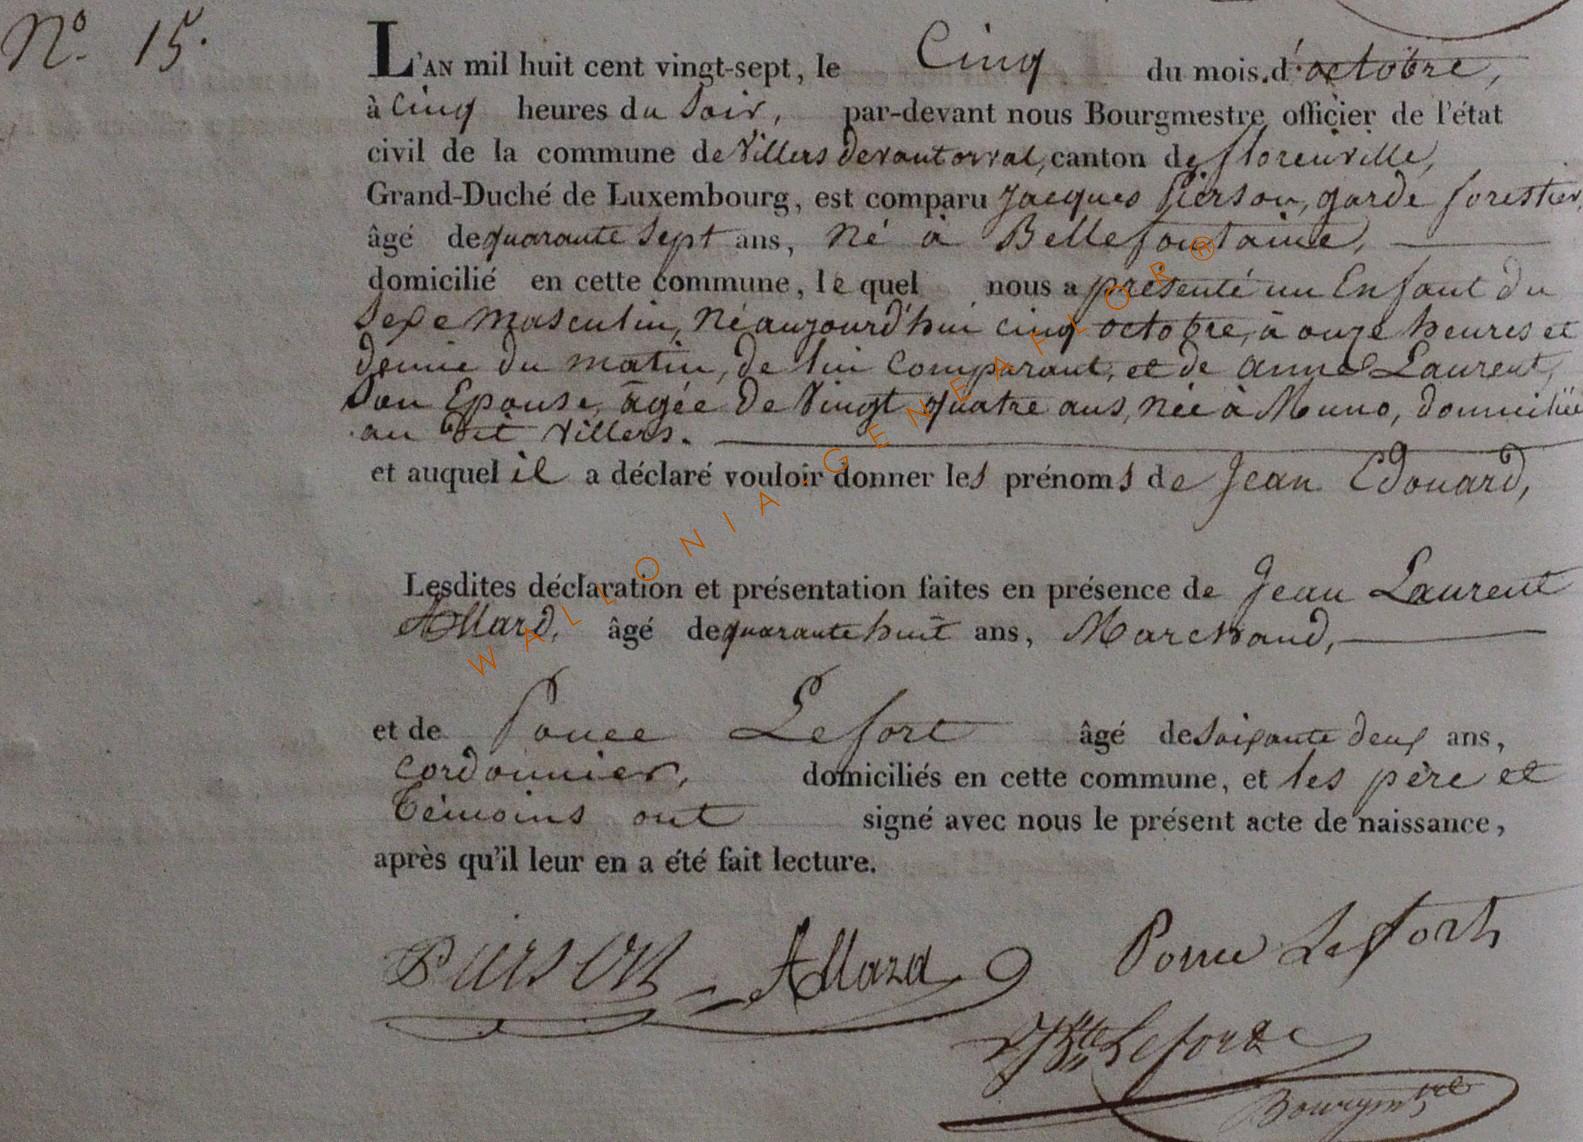 N.o 15.
L'AN mil huit cent vingt-sept, le Cinq du mois d'octobre,
à Cinq heures du Soir, par-devant nous Bourgmestre officier de l'état
civil de la commune de Villers devant orval, canton de florenville,
Grand-Duché de Luxembourg, est comparu Jacques Pierson, garde forestier,
âgé de quarante Sept ans, Né à Bellefontaine,
domicilié en cette commune, le quel nous a présenté un Enfant du
Sexe Masculin, Né aujourd'hui cinq octobre, à onze heures et
demie du matin, de lui Comparant, et de anne Laurent,
Son Epouse, agée de Vingt quatre ans, née à Muno, domiciliée
au dit Villers.
et auquel il a déclaré vouloir donner les prénoms de Jean Edouard,
Lesdites déclaration et présentation faites en présence de Jean Laurent
Allard, âgé de quarante huit ans, Marchand,
et de Ponce Lefort âgé de soixante deux ans,
Cordonnier, domiciliés en cette commune, et les père et
Témoins ont signé avec nous le présent acte de naissance,
après qu'il leur en a été fait lecture.
Pierson Allard Ponce Lefort
Bourgmtre
WALLONIA-GENEAFLOR®